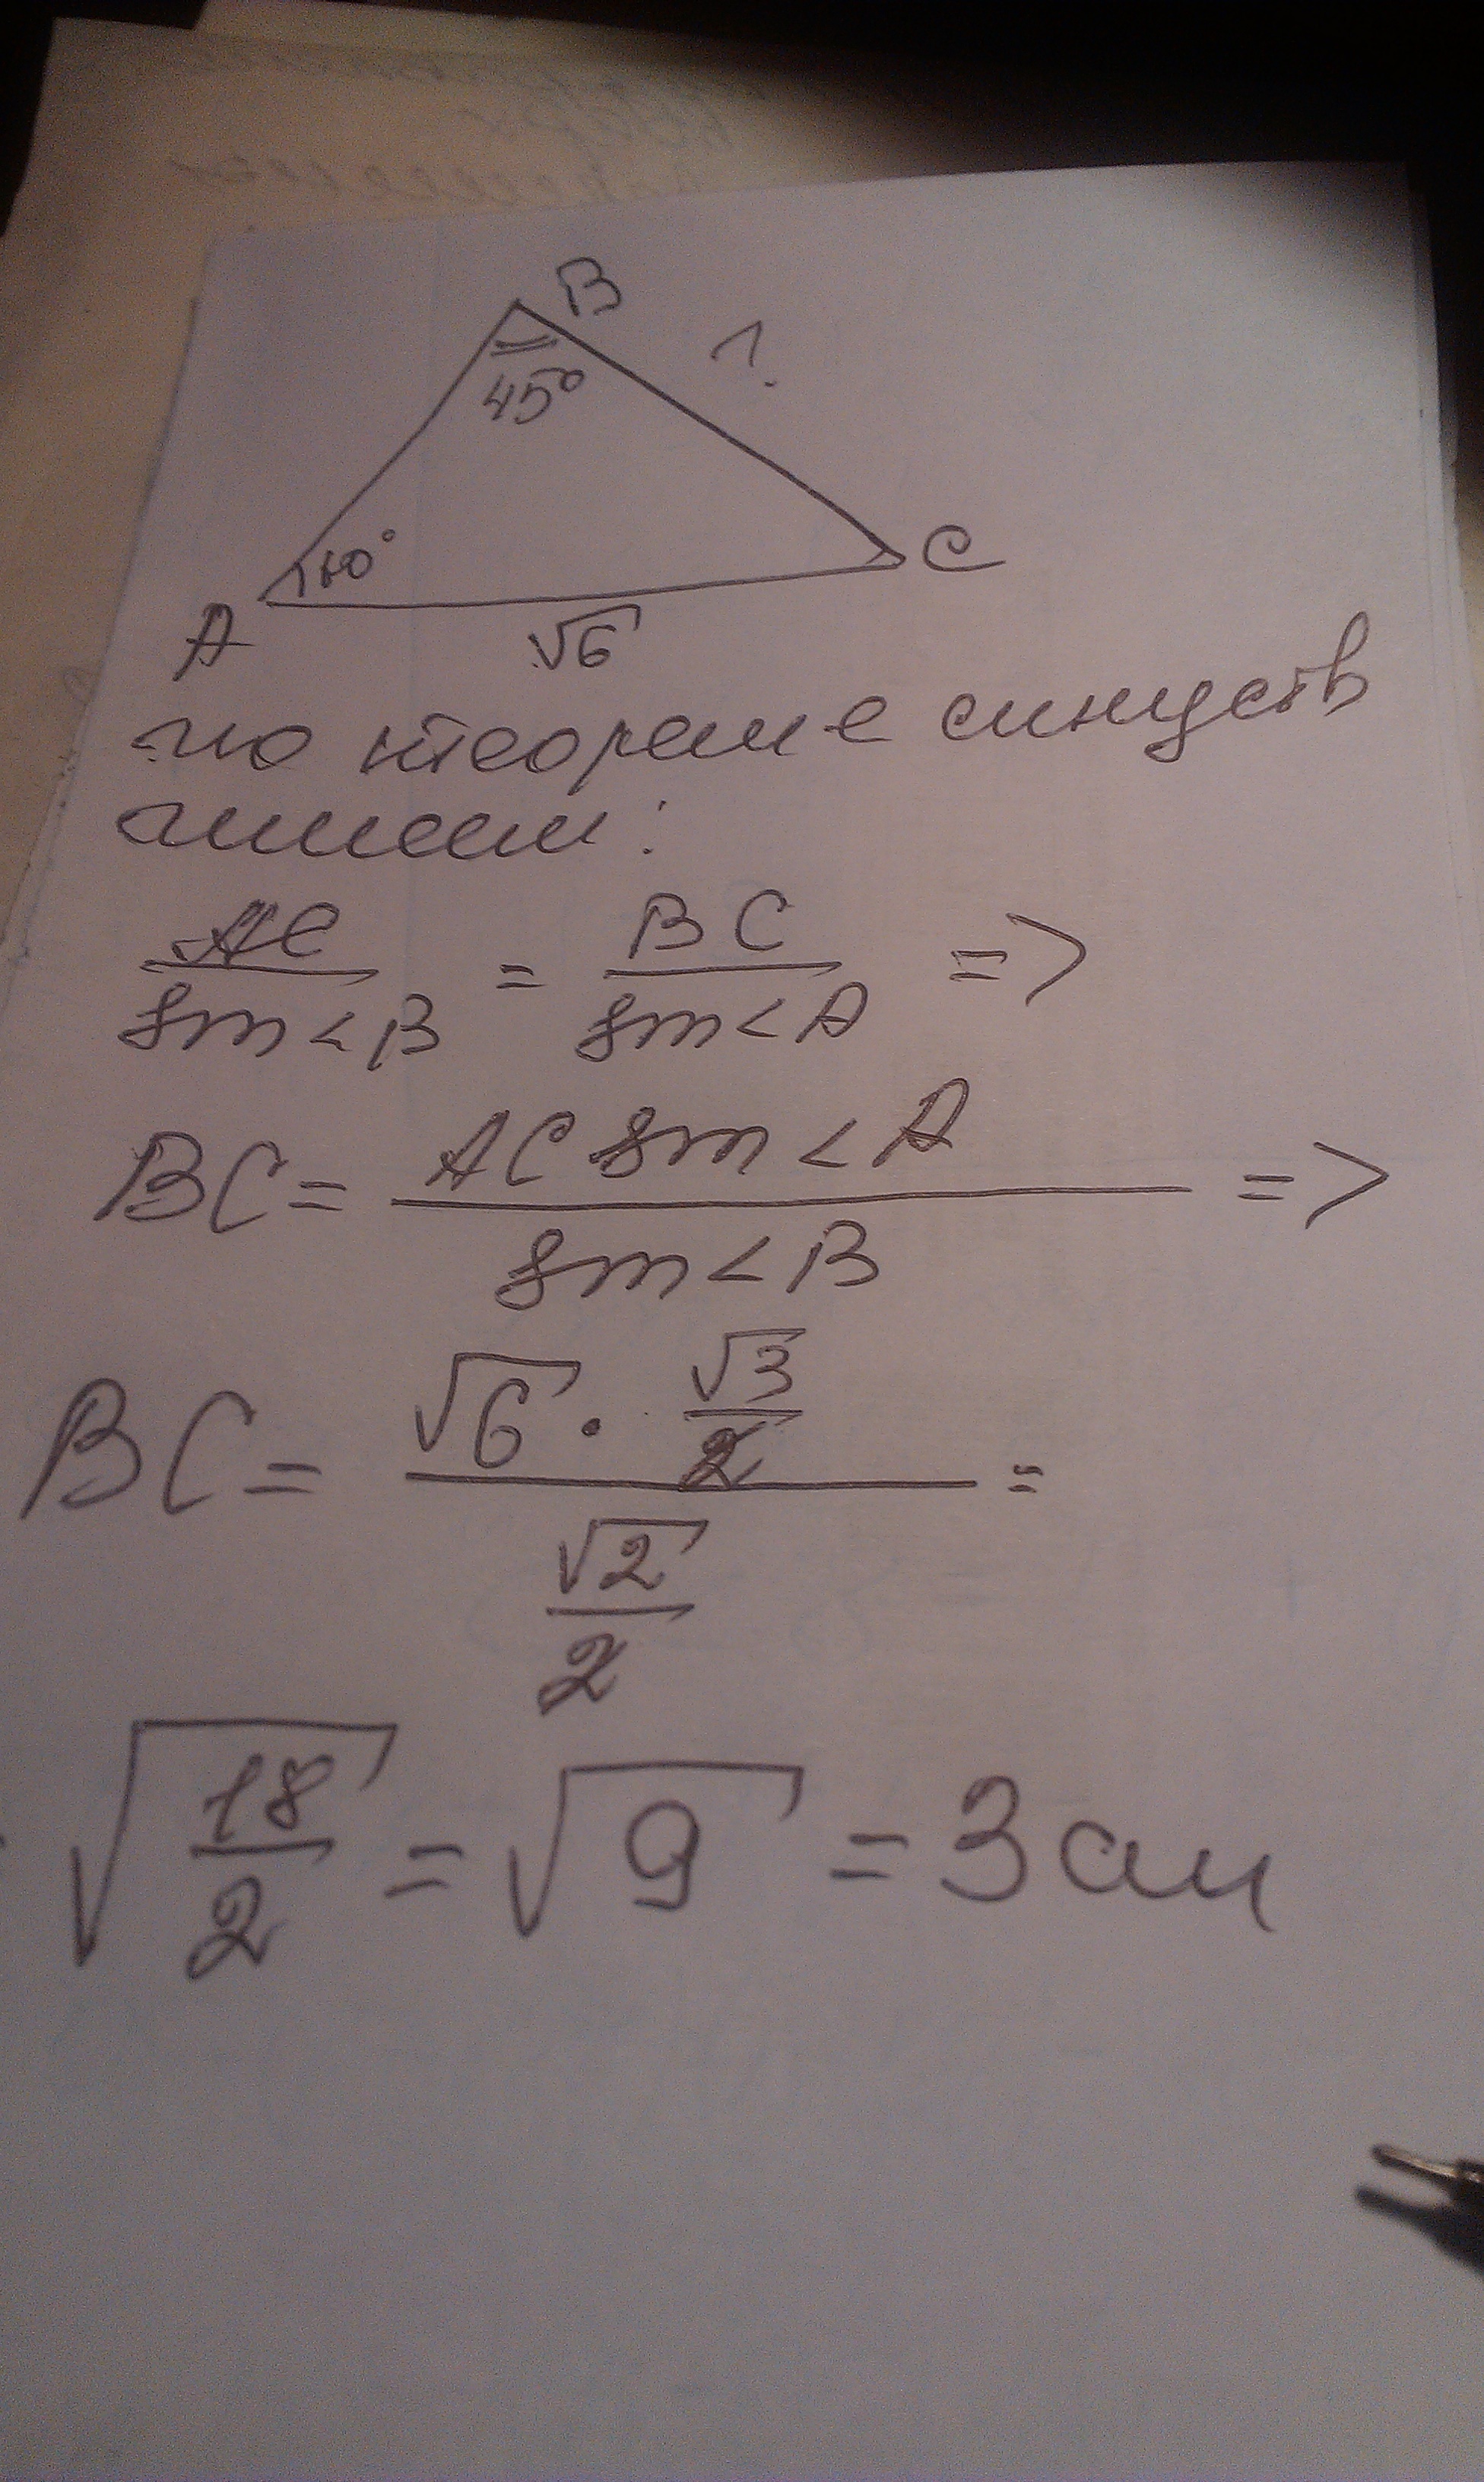 B
?
45°
60°
C
A
√6
по теореме синусов
имеем:
AC/sin<B = BC/sin<A =>
BC = AC sin<A / sin<B =>
BC = (√6 · √3/2) / (√2/2) =
√(18/2) = √9 = 3 см